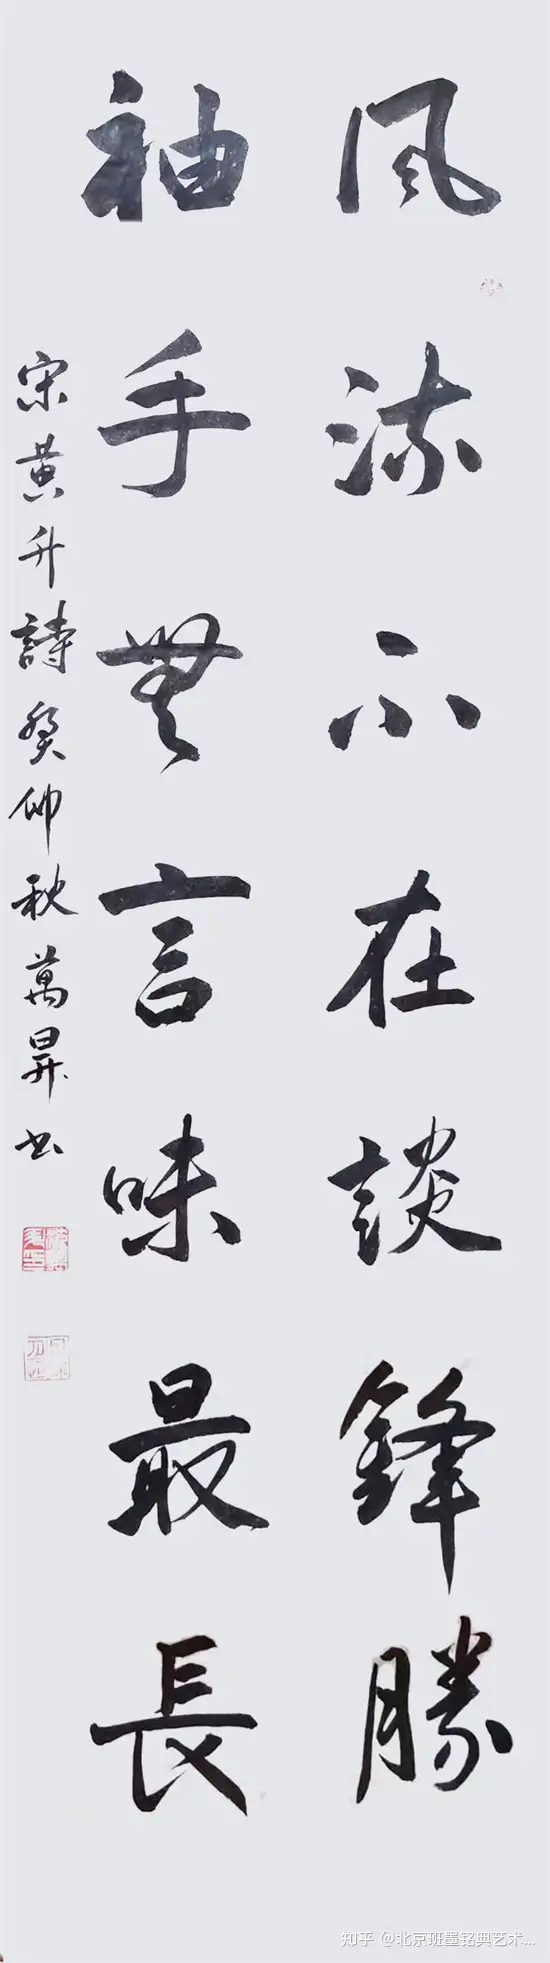 風流不在談鋒勝
袖手無言味最長
宋黄升詩癸仲秋萬昇书
知乎 @北京班墨铭典艺术...